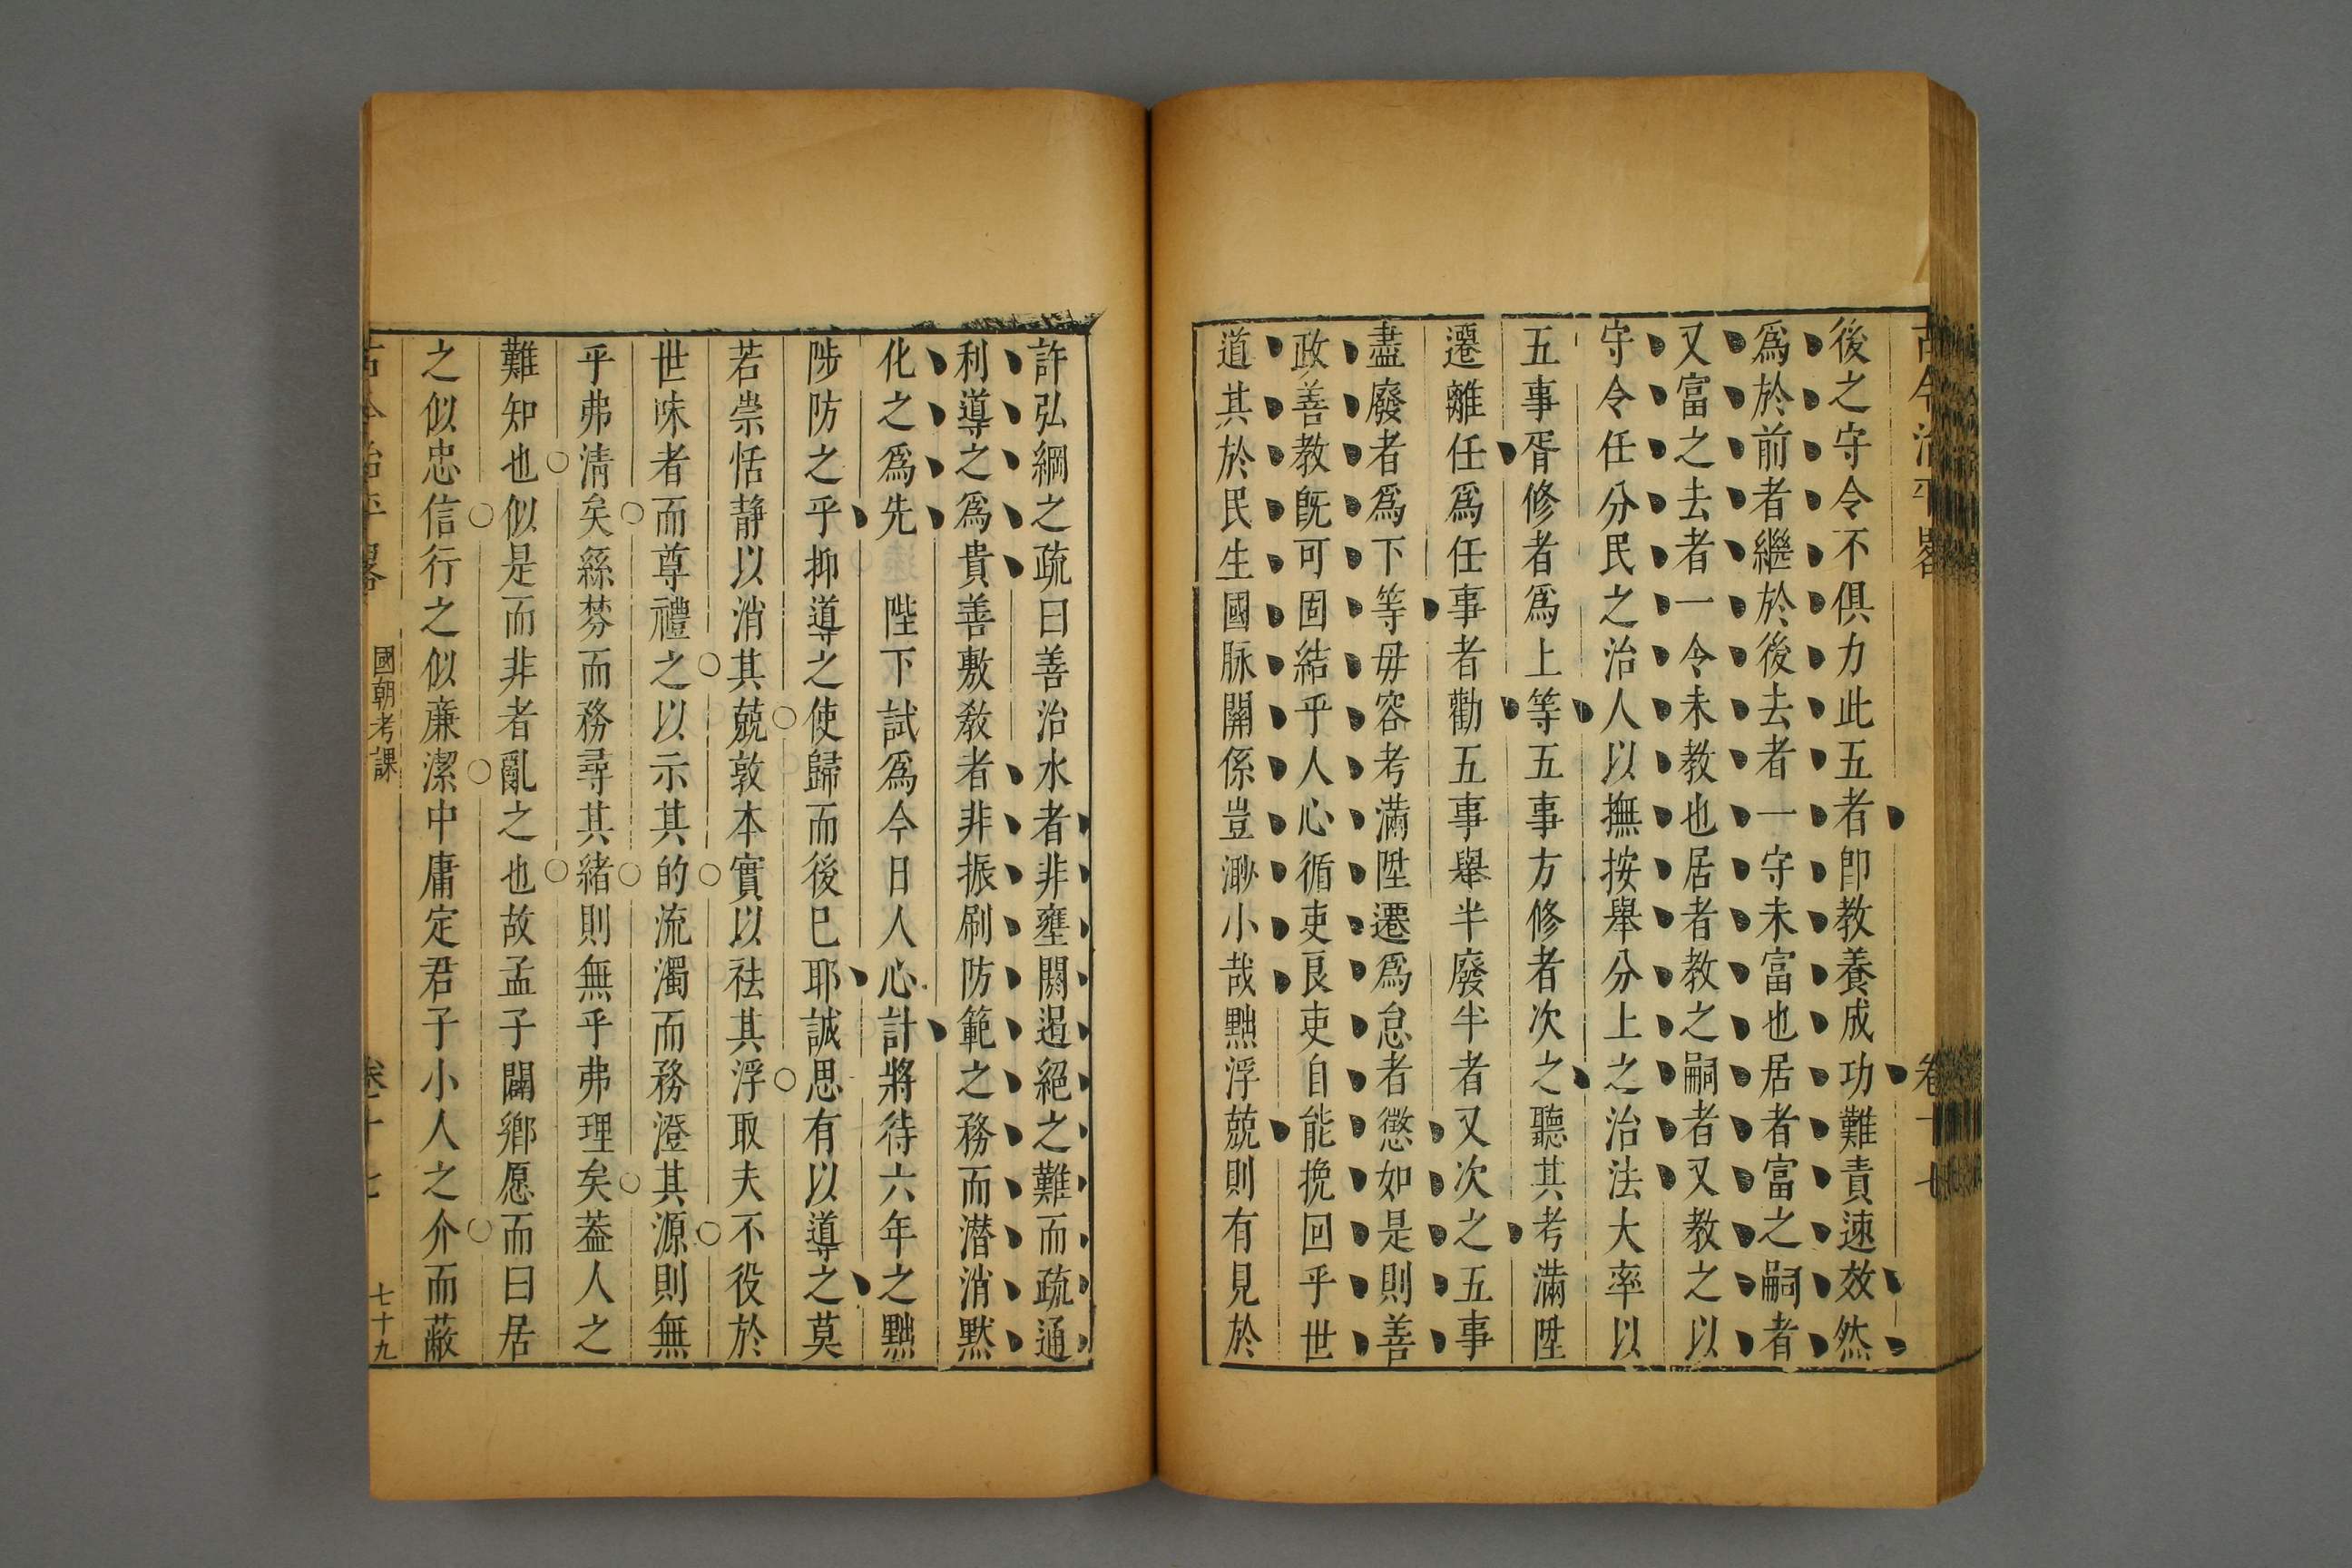 後之守令不俱力此五者卽教養成功難責速效然
爲於前者繼於後去者一守未富也居者富之嗣者
又富之去者一令未教也居者教之嗣者又教之以
守令任分民之治人以撫按舉分上之治法大率以
五事胥修者爲上等五事方修者次之聽其考滿陞
遷離任爲任事者勸五事舉半廢半者又次之五事
盡廢者爲下等毋容考滿陞遷爲怠者懲如是則善
政善教旣可固結乎人心循吏良吏自能挽回乎世
道其於民生國脉關係豈渺小哉黜浮兢則有見於
許弘綱之疏曰善治水者非壅閼遏絕之難而疏通
利導之爲貴善敷教者非振刷防範之務而潛消默
化之爲先陛下試爲今日人心計將待六年之黜
陟防之乎抑導之使歸而後已耶誠思有以導之莫
若崇恬静以消其兢敦本實以祛其浮取夫不役於
世味者而尊禮之以示其的流濁而務澄其源則無
乎弗淸矣絲棼而務尋其緖則無乎弗理矣葢人之
難知也似是而非者亂之也故孟子闢鄉愿而曰居
之似忠信行之似廉潔中庸定君子小人之介而蔽
國朝考課
七十九